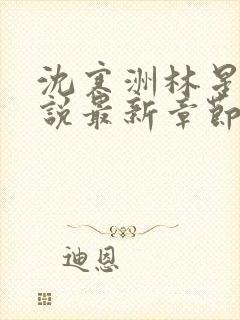 沈寒洲林星
說最新章節
迪恩